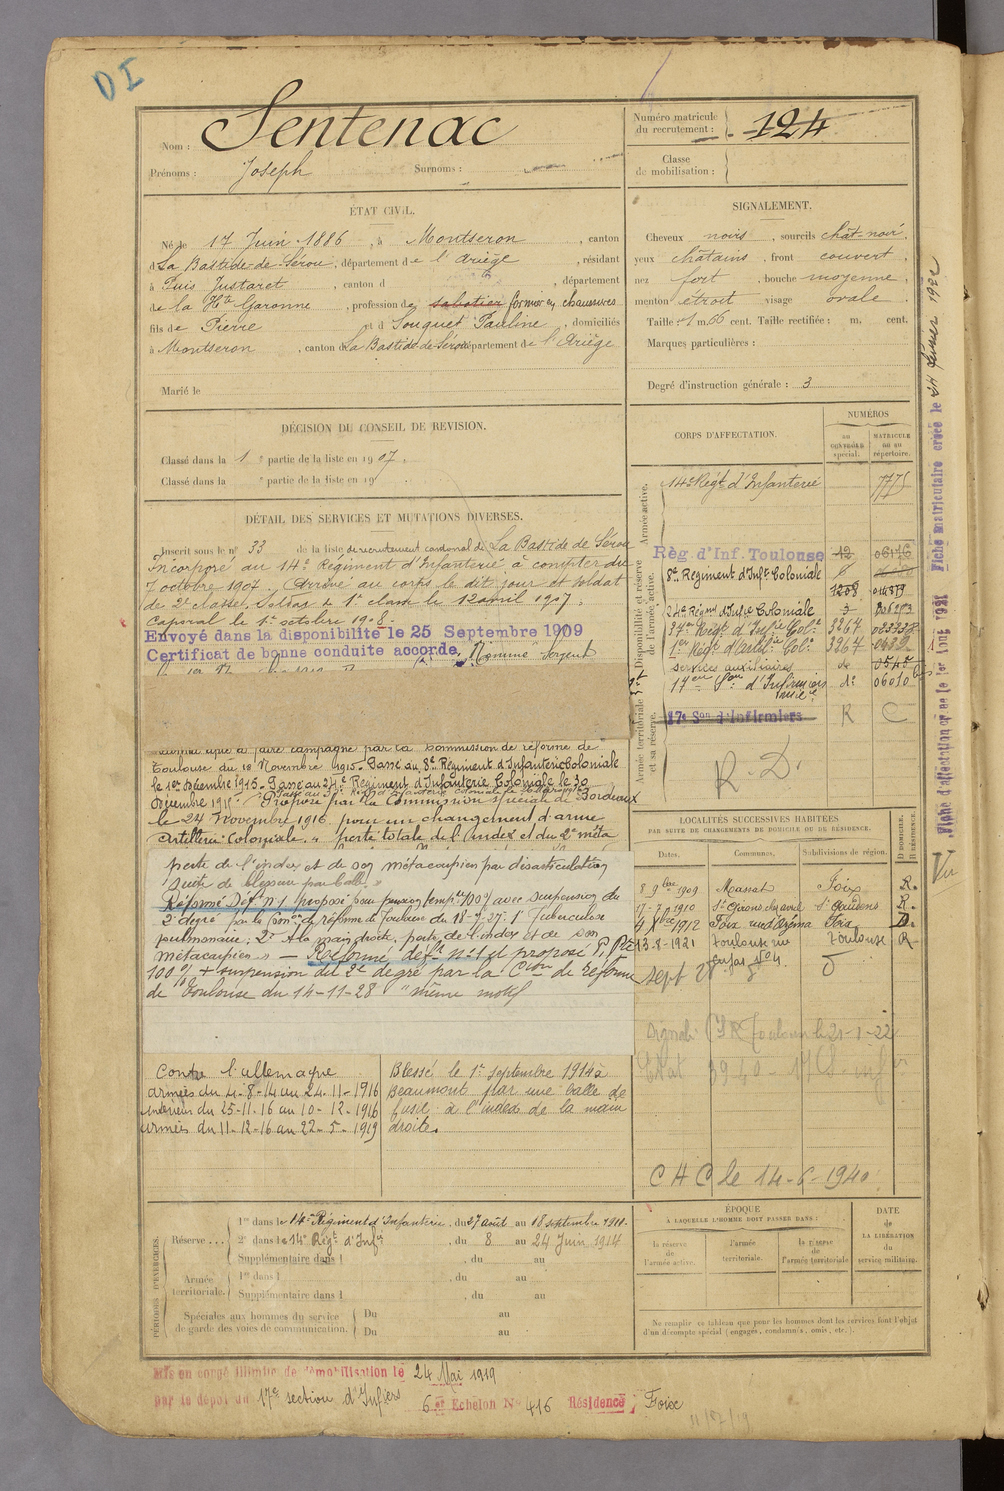 DI
Nom : Sentenac
Prénoms : Joseph Surnoms :
Numéro matricule du recrutement : 124
Classe de mobilisation :
ÉTAT CIVIL.
Né le 17 Juin 1886, à Montseron, canton
d La Bastide-de-Sérou, département de l'Ariège, résidant
à Puis Justaret, canton d , département
de la Hte Garonne, profession de sabotier formier en chaussures
fils de Pierre et d Souquet Pauline, domiciliés
à Montseron, canton de La Bastide de Sérou département de l'Ariège
Marié le
SIGNALEMENT.
Cheveux noirs, sourcils chât-noir,
yeux châtains, front couvert,
nez fort, bouche moyenne,
menton étroit visage ovale
Taille : 1 m. 66 cent. Taille rectifiée : m. cent.
Marques particulières :
Degré d'instruction générale : 3
DÉCISION DU CONSEIL DE REVISION.
Classé dans la 1 e partie de la liste en 1907.
Classé dans la e partie de la liste en 19
DÉTAIL DES SERVICES ET MUTATIONS DIVERSES.
Inscrit sous le n° 33 de la liste de recrutement cantonal de La Bastide de Sérou
Incorporé au 14e Régiment d'Infanterie à compter du
7 octobre 1907. Arrivé au corps le dit jour et soldat
de 2e classe. Soldat de 1e classe le 12 avril 1907.
Caporal le 1er octobre 1908.
Envoyé dans la disponibilité le 25 Septembre 1909
Certificat de bonne conduite accordé. Nommé Sergent
à faire campagne par la Commission de réforme de
Toulouse du 18 Novembre 1915. Passé au 8e Régiment d'Infanterie Coloniale
le 1er Décembre 1915. Passé au 24e Régiment d'Infanterie Coloniale le 30
Décembre 1915. Proposé par la Commission spéciale de Bordeaux
le 24 Novembre 1916 pour un changement d'arme
Artillerie Coloniale. " perte totale de l'index et du 2e méta
perte de l'index et de son métacarpien par désarticulation
suite de blessure par balle. "
Réformé Déf. n°1 proposé pour pension tempre 100% avec suspension du
2e degré par la Comon de réforme de Toulouse du 18-7-27 : 1° Tuberculose
pulmonaire ; 2° A la main droite, perte de l'index et de son
métacarpien. — Réformé deft n°1 et proposé P. P.
100% + suspension du 2e degré par la Cion de réforme
de Toulouse du 14-11-28 "même motif
Contre l'Allemagne
armées du 4-8-14 au 24-11-1916
intérieur du 25-11-16 au 10-12-1916
armées du 11-12-16 au 22-5-1919
Blessé le 1er septembre 1914 à
Beaumont par une balle de
fusil à l'index de la main
droite.
CORPS D'AFFECTATION.
NUMÉROS
au contrôle spécial.
matricule ou au répertoire.
Armée active.
Disponibilité et réserve de l'armée active.
Armée territoriale et sa réserve.
14e Régt d'Infanterie 7775
Rég. d'Inf. Toulouse 12
8e Régiment d'Inft Coloniale
1208
24e Régimt d'Infie Coloniale
37e Régt d'Infie Cole 3267
1er Régt d'Artie Cole 3267
services auxiliaires do
17eme Son d'Infirmiers do 06010
17e Son d'Infirmiers R C
R. D.
LOCALITÉS SUCCESSIVES HABITÉES
PAR SUITE DE CHANGEMENTS DE DOMICILE OU DE RÉSIDENCE.
Dates. Communes. Subdivisions de région. D DOMICILE. R RÉSIDENCE.
8 9bre 1909 Massat Foix R.
17-7-1910 St Girons St Gaudens R.
4 Xbre 1912 Foix rue d'Azéma Foix D.
13-8-1921 Toulouse rue Toulouse R
Signalé Toulouse le 21-1-22
CHC le 14-6-1940
PÉRIODES D'EXERCICES.
Réserve...
1re dans le 14e Régiment d'Infanterie, du 27 août au 18 septembre 1910.
2e dans le 14e Régt d'Infie, du 8 au 24 Juin 1914
Supplémentaire dans l , du au
Armée territoriale.
1re dans l , du au
Supplémentaire dans l , du au
Spéciales aux hommes du service de garde des voies de communication.
Du au
Du au
ÉPOQUE
À LAQUELLE L'HOMME DOIT PASSER DANS :
la réserve de l'armée active.
l'armée territoriale.
la réserve de l'armée territoriale
DATE de LA LIBÉRATION du service militaire.
Ne remplir ce tableau que pour les hommes dont les services font l'objet
d'un décompte spécial (engagés, condamnés, omis, etc.).
Mis en congé illimité de démobilisation le 24 Mai 1919
par le dépôt du 17e section d'Infiers 6 e Echelon N° 416 Résidence : Foix
Fiche matriculaire créée le 24 février 1922
Fiche d'affectation créée le 1er Août 1921
Vu